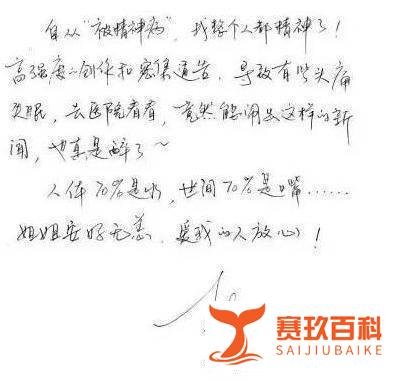 自从“被精神病”，我整个人都精神了！
高强度的创作和密集通告，导致有些头痛
失眠，去医院看看，竟然能闹出这样的新
闻，也真是醉了~
人体70%是水，世间70%是嘴……
姐姐安好无恙，爱我的人放心！
赛玖百科
SAIJIUBAIKE